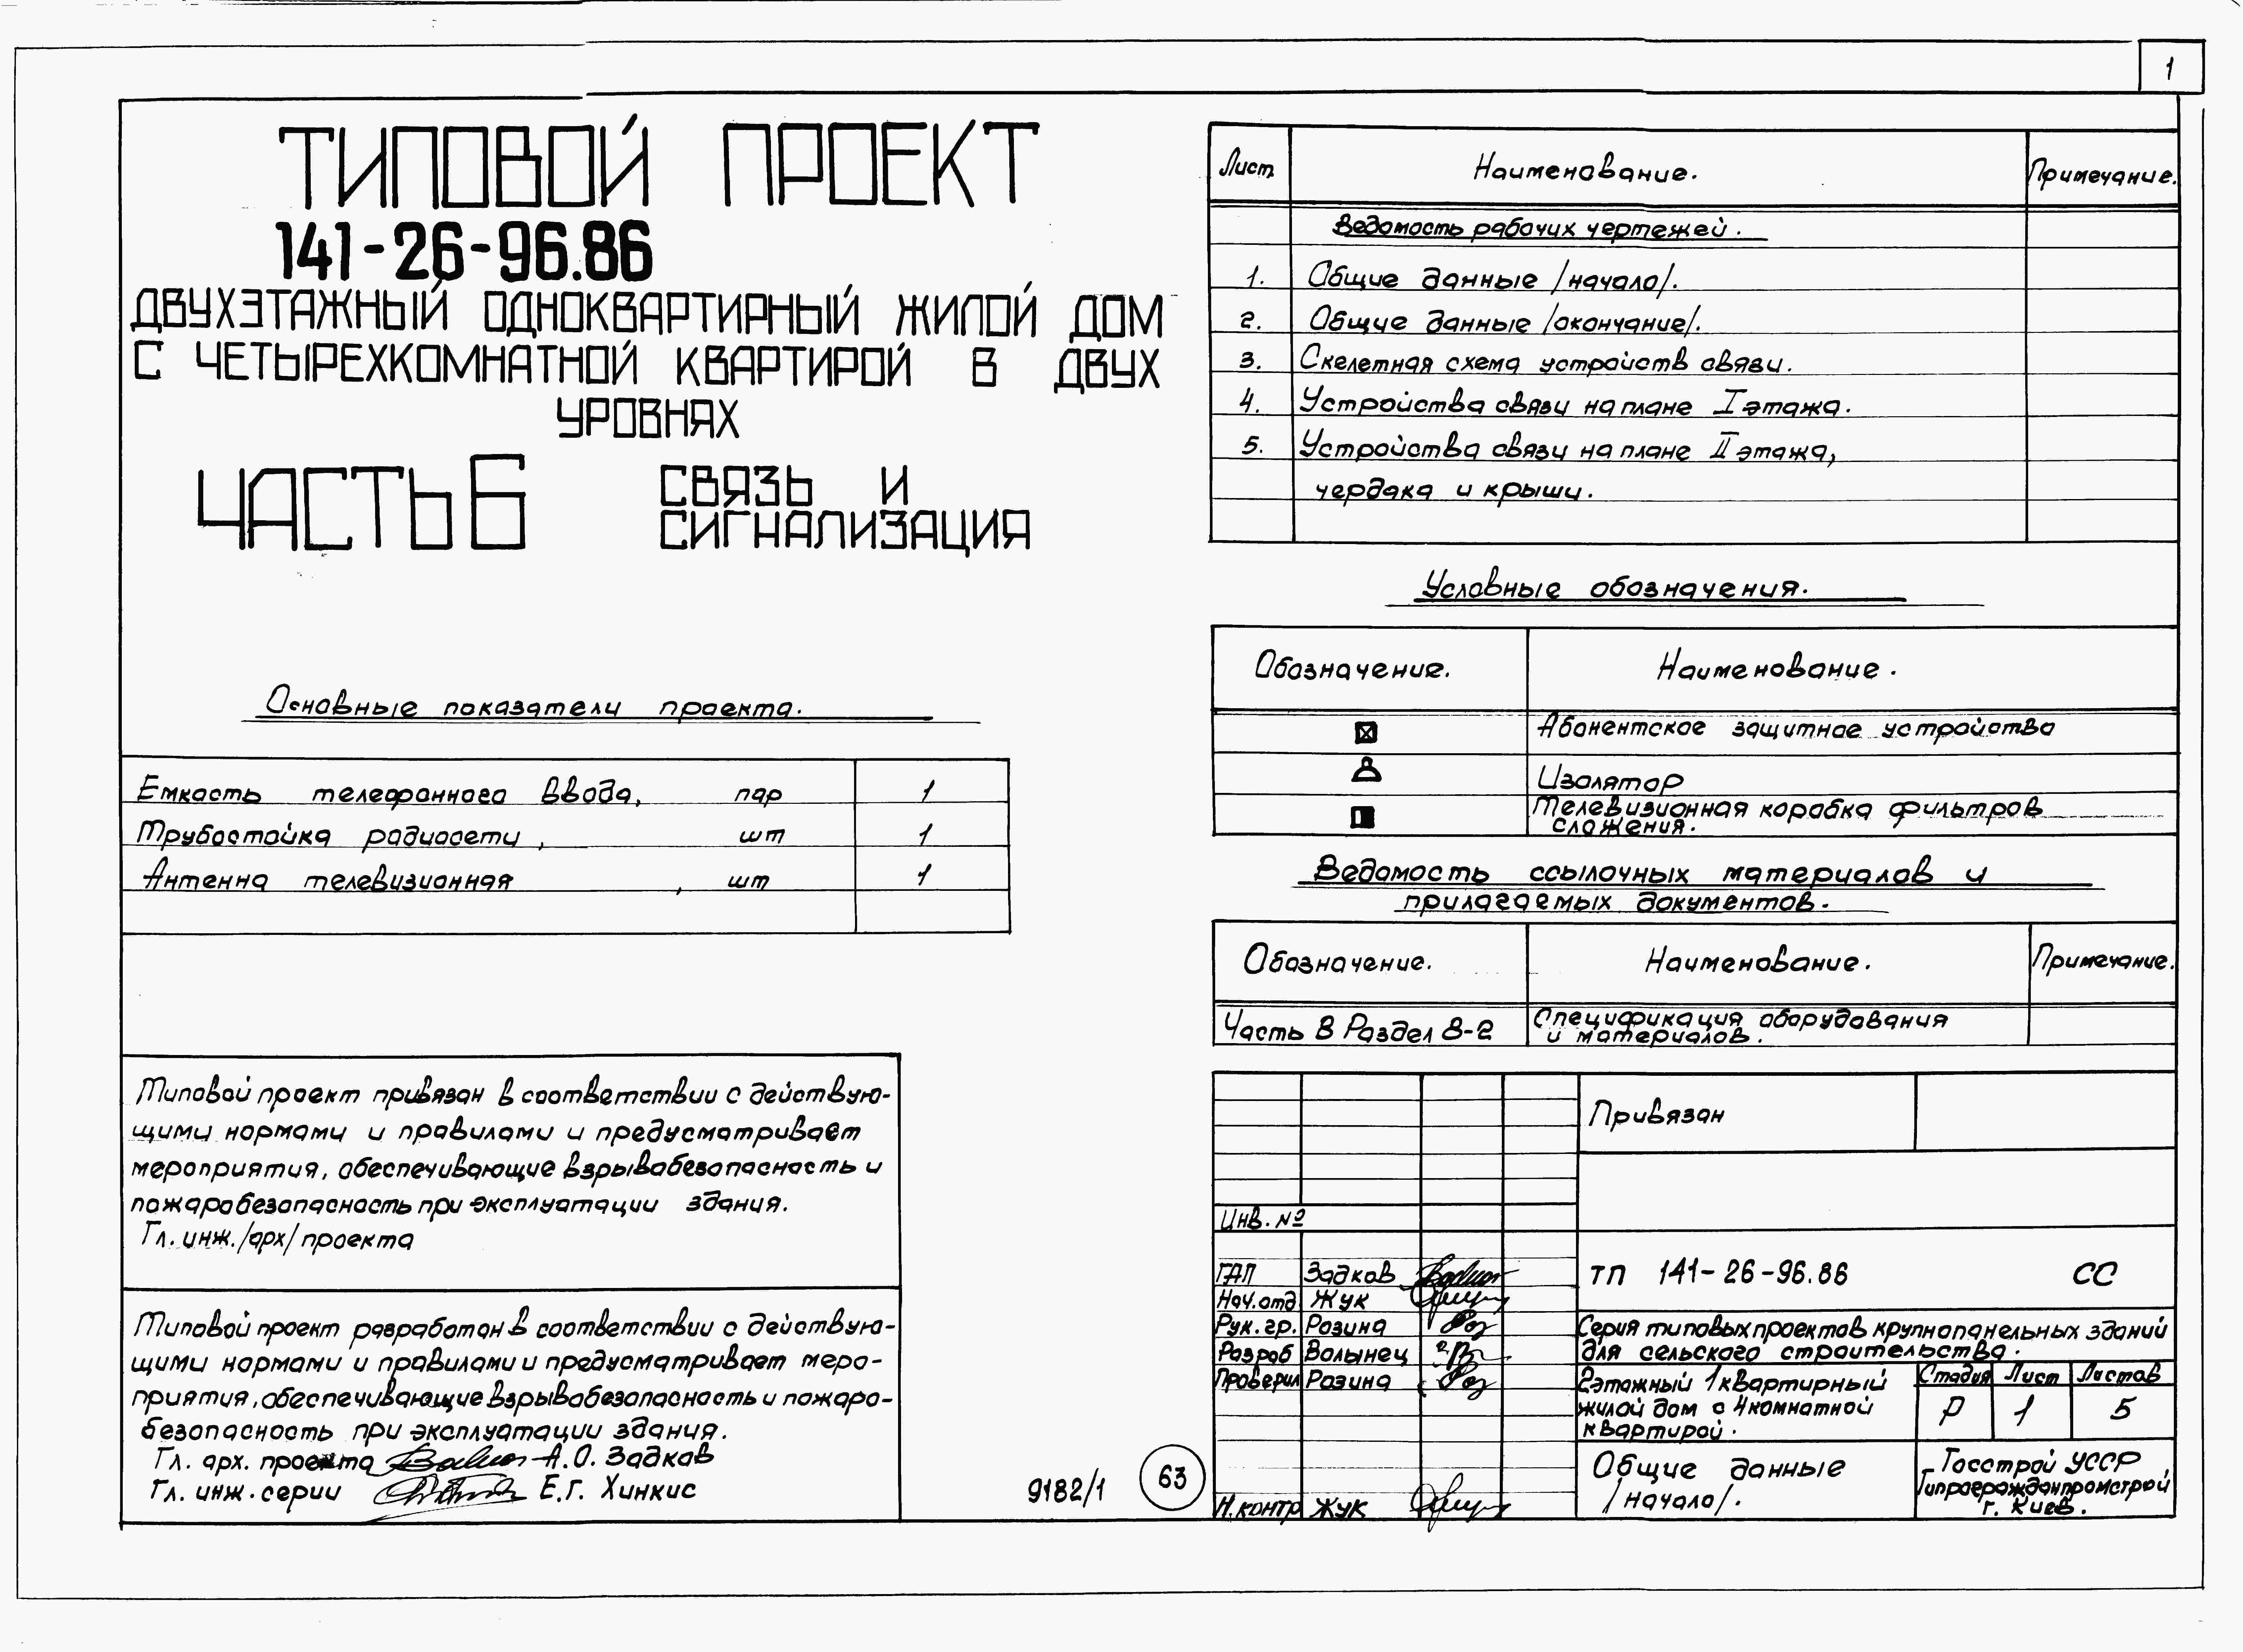 1
ТИПОВОЙ ПРОЕКТ
141-26-96.86
ДВУХЭТАЖНЫЙ ОДНОКВАРТИРНЫЙ ЖИЛОЙ ДОМ
С ЧЕТЫРЕХКОМНАТНОЙ КВАРТИРОЙ В ДВУХ
УРОВНЯХ
ЧАСТЬ 6
СВЯЗЬ И
СИГНАЛИЗАЦИЯ
Основные показатели проекта.
Емкость телефонного ввода, пар 1
Трубостойка радиосети, шт 1
Антенна телевизионная, шт 1
Типовой проект привязан в соответствии с действую-
щими нормами и правилами и предусматривает
мероприятия, обеспечивающие взрывобезопасность и
пожаробезопасность при эксплуатации здания.
Гл. инж./арх/ проекта
Типовой проект разработан в соответствии с действую-
щими нормами и правилами и предусматривает меро-
приятия, обеспечивающие взрывобезопасность и пожаро-
безопасность при эксплуатации здания.
Гл. арх. проекта А.О. Задков
Гл. инж. серии Е.Г. Хинкис
9182/1
63
Лист Наименование. Примечание.
Ведомость рабочих чертежей.
1. Общие данные /начало/.
2. Общие данные /окончание/.
3. Скелетная схема устройств связи.
4. Устройства связи на плане I этажа.
5. Устройства связи на плане II этажа,
чердака и крыши.
Условные обозначения.
Обозначение. Наименование.
Абонентское защитное устройство
Изолятор
Телевизионная коробка фильтров
сложения.
Ведомость ссылочных материалов и
прилагаемых документов.
Обозначение. Наименование. Примечание.
Часть 8 Раздел 8-2 Спецификация оборудования
и материалов.
Привязан
Инв. №
ГАП Задков
Нач. отд Жук
Рук. гр. Розина
Разраб Волынец
Проверил Розина
Н. контр Жук
ТП 141-26-96.86 СС
Серия типовых проектов крупнопанельных зданий
для сельского строительства.
2этажный 1квартирный
жилой дом с 4комнатной
квартирой.
Стадия Лист Листов
Р 1 5
Общие данные
/начало/.
Госстрой УССР
Гипрогражданпромстрой
г. Киев.